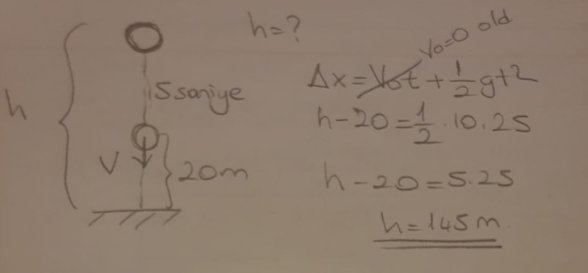 h=?
h
5 saniye
V
20m
V₀=0 old
Δx=V₀t+½gt²
h-20=½.10.25
h-20=5.25
h=145m